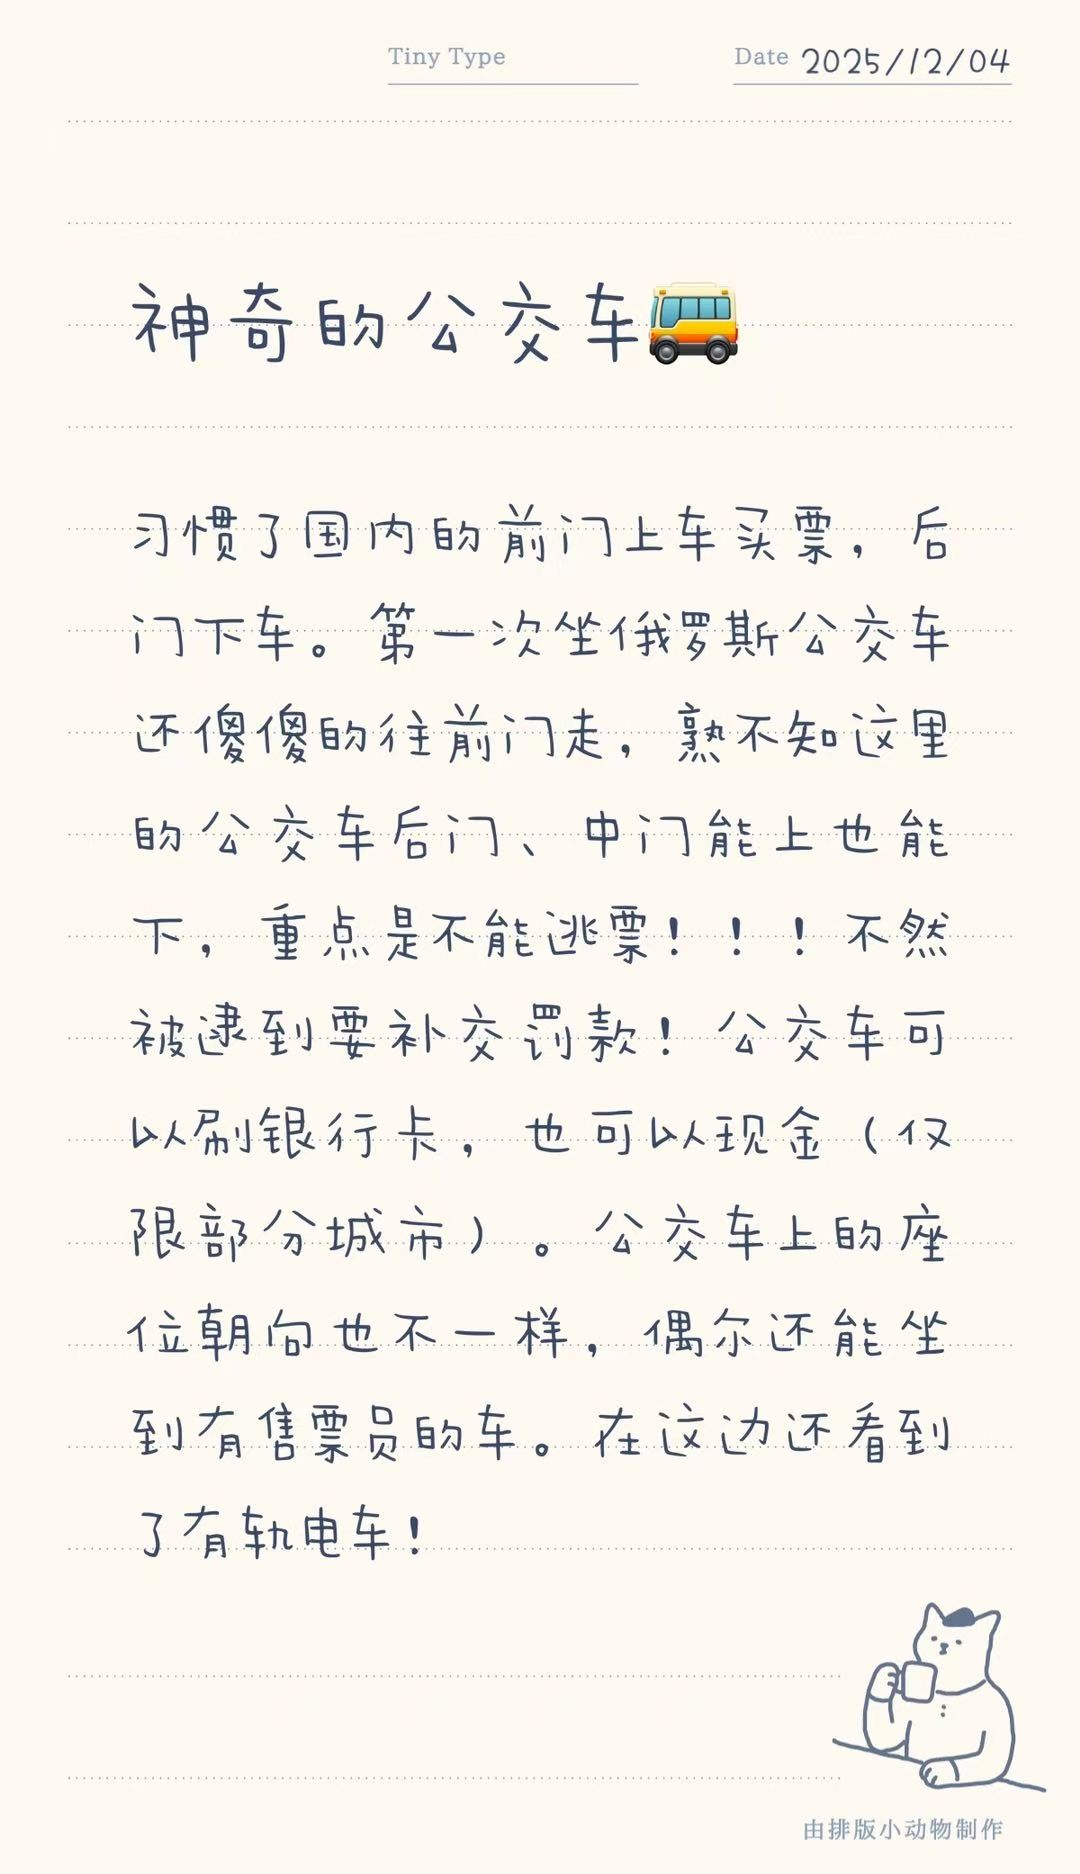 Tiny Type
Date 2025/12/04
神奇的公交车🚌
习惯了国内的前门上车买票，后
门下车。第一次坐俄罗斯公交车
还傻傻的往前门走，熟不知这里
的公交车后门、中门能上也能
下，重点是不能逃票！！！不然
被逮到要补交罚款！公交车可
以刷银行卡，也可以现金（仅
限部分城市）。公交车上的座
位朝向也不一样，偶尔还能坐
到有售票员的车。在这边还看到
了有轨电车！
由排版小动物制作